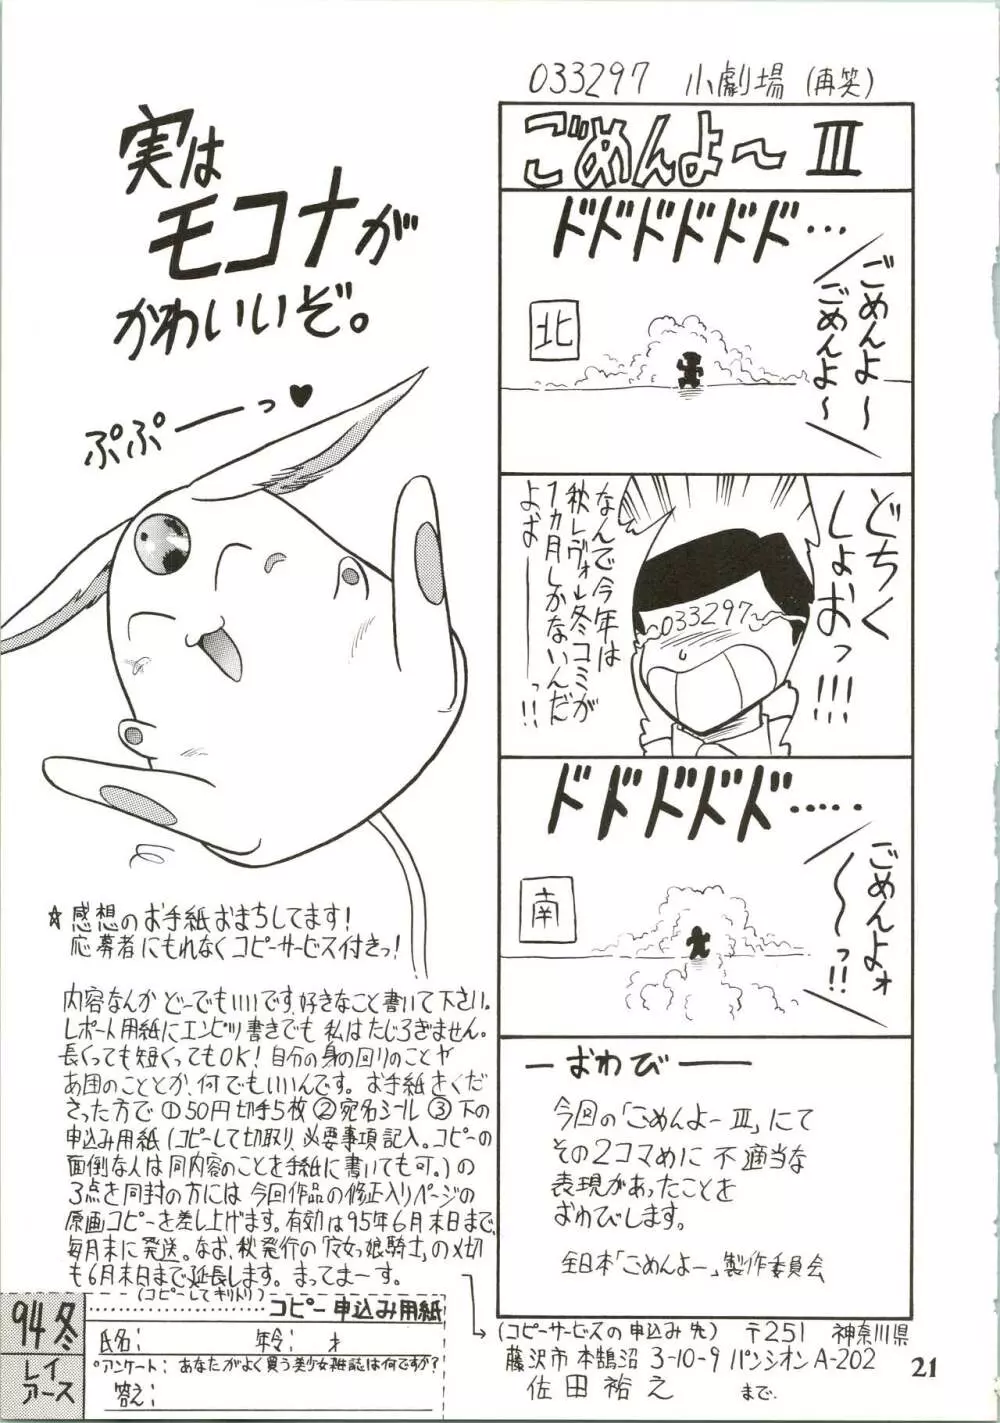 033297 小劇場 (再笑)
ごめんよ～ III
ドドドドドド・・・
ごめんよ～
ごめんよ～
北
どちく
しょおっ!!!
なんで今年は
秋レヴォ～冬コミが
1ヵ月しかないんだ
よぉ———っ!!
033297
ドドドドドド・・・・・
ごめんよォ
～～っ!!
南
ーおわびー
今回の「ごめんよーIII」にて
その2コマめに不適当な
表現があったことを
おわびします。
全日本「ごめんよー」製作委員会
実は
モコナが
かわいいぞ。
ぷぷーーっ♥
☆感想のお手紙おまちしてます!
応募者にもれなくコピーサービス付きっ!
内容なんかど～でもいいです、好きなこと書いて下さい。
レポート用紙にエンピツ書きでも私はたじろぎません。
長くっても短くってもOK! 自分の身の回りのことや
あ団のこととか、何でもいいんです。お手紙をくだ
さった方で ①50円切手5枚 ②宛名シール ③下の
申込み用紙(コピーして切取り、必要事項記入。コピーの
面倒な人は同内容のことを手紙に書いても可。)の
3点を同封の方には今回作品の修正入りページの
原画コピーを差し上げます。有効は95年6月末日まで、
毎月末に発送。なお、秋発行の「魔女っ娘騎士」の〆切
も6月末日まで延長します。まってまーす。
(コピーしてキリトリ)
94冬
レイアース
コピー申込み用紙
氏名: 年令: 才
°アンケート: あなたがよく買う美少女雑誌は何ですか?
答え:
(コピーサービスの申込み先) 〒251 神奈川県
藤沢市本鵠沼3-10-9 パンシオンA-202
佐田裕之 まで.
21